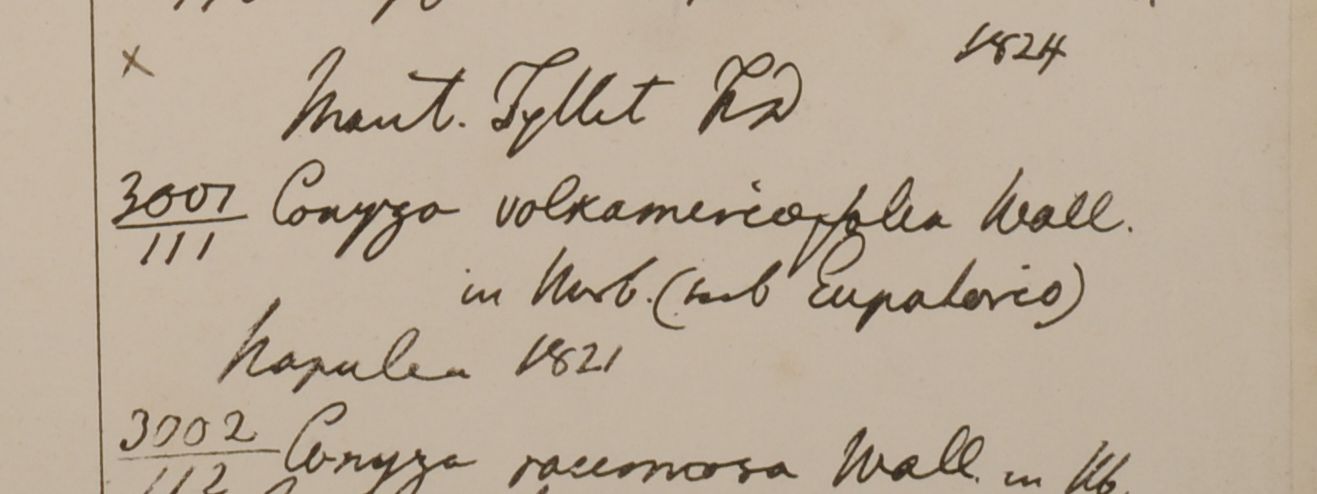 × 1824
Mont. Syllet FD
3001 Conyza volkameriæfolia Wall.
111
in Herb. (sub Eupatorio)
Napulea 1821
3002 Conyza racemosa Wall. in Hb.
112